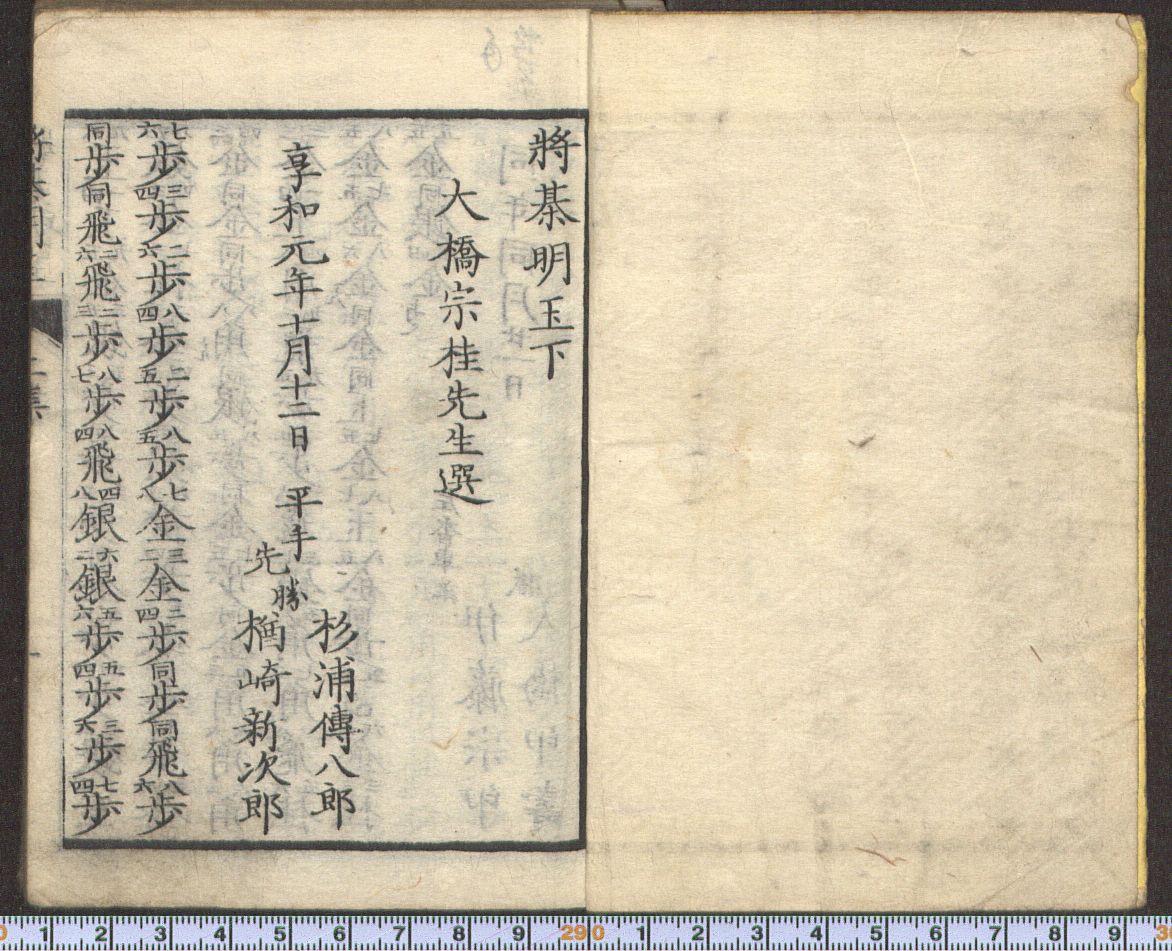 將棊明玉下
大橋宗桂先生選
享和元年十月十二日 平手
勝 杉浦傳八郎
先 楢崎新次郎
七六歩 三四歩 二六歩 八四歩 二五歩 八五歩 七八金 三二金 二四歩 同歩 同飛 八六歩
同歩 同飛 二六飛 二三歩 八七歩 八四飛 四八銀 六二銀 五六歩 五四歩 三六歩 七四歩
0 1 2 3 4 5 6 7 8 9 29 0 1 2 3 4 5 6 7 8 9